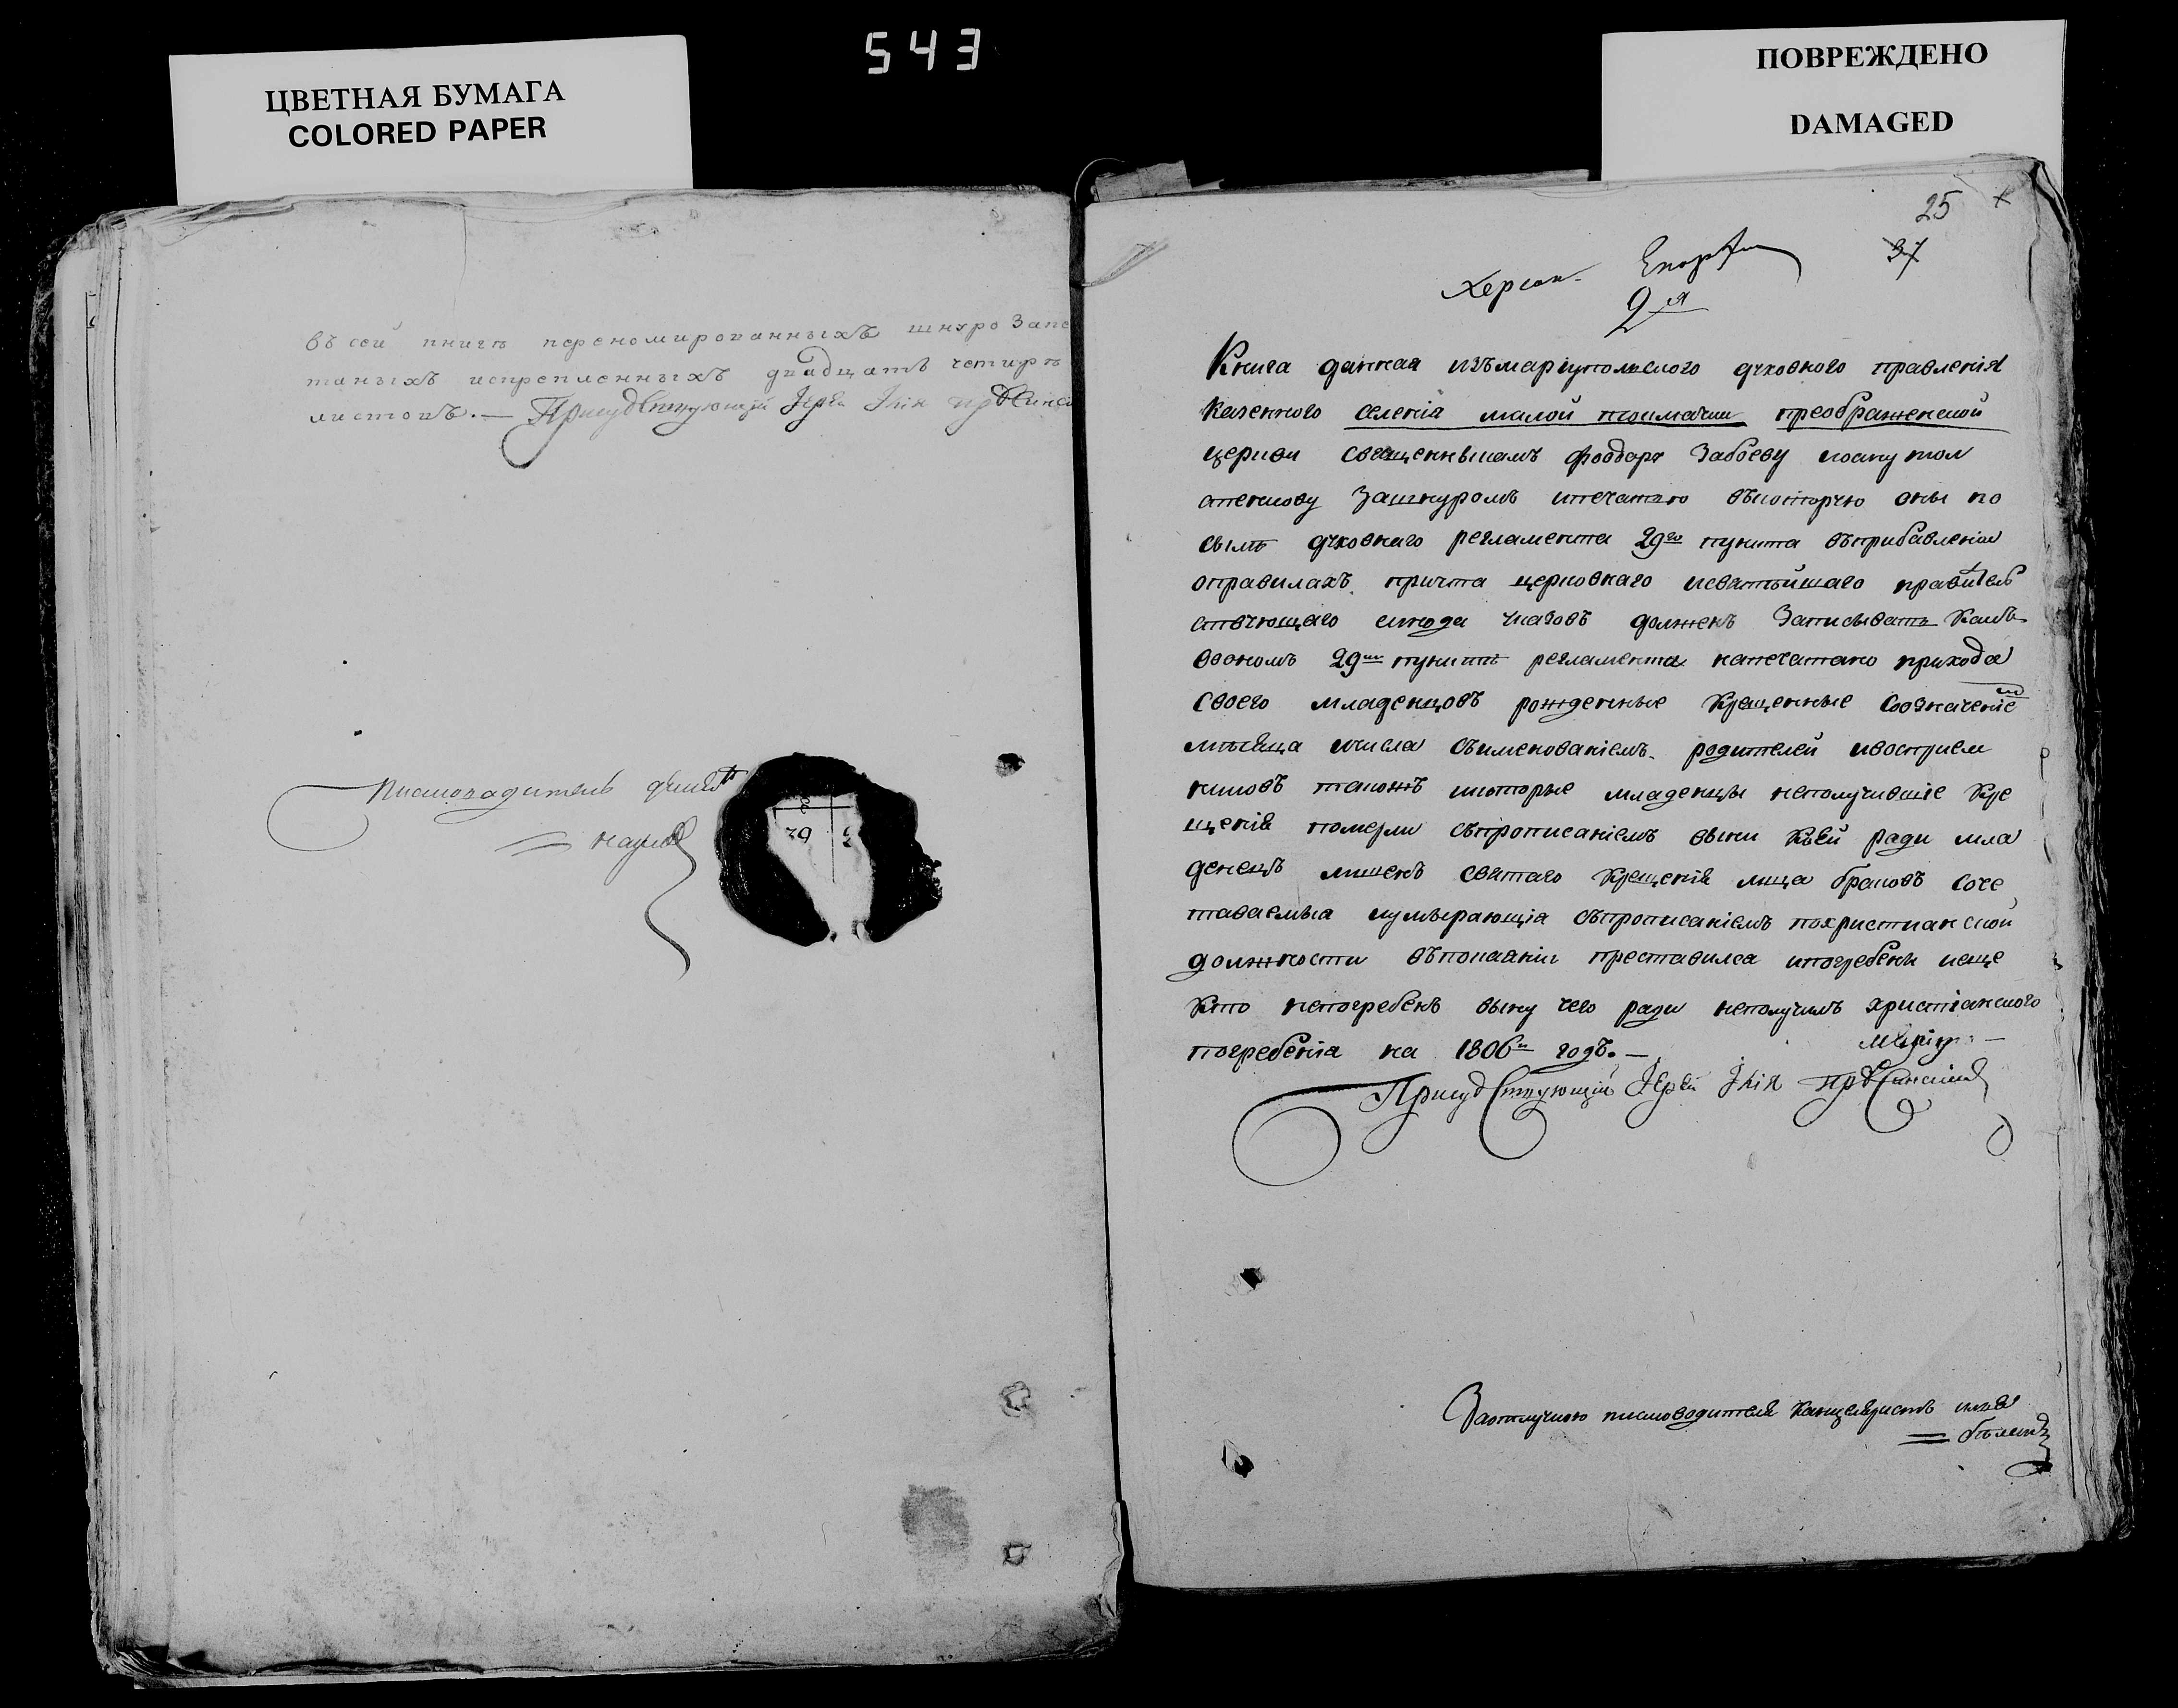 543
ЦВЕТНАЯ БУМАГА
COLORED PAPER
ПОВРЕЖДЕНО
DAMAGED
въ сей книгѣ переномированныхъ шнуро Запе
таныхъ искрепленныхъ двадцать четирѣ
листовъ. — Присудствующій Іерей Ілія
Писмовадитель
25
37
Херсон.
2я
Книга данная изъмаріупольского духовного правленія
Казенного селенія малой токмачки преображенской
церкви священникамъ феодору Забоеву
Зашнуромъ ипечатью вькоторую они по
силѣ духовнаго регламента 29го пункта въприбавленіи
оправилахъ причта церковнаго исвятѣйшаго правитель
ствующаго синода указовъ должен Записывать Какъ
воономъ 29мъ пунктѣ регламента напечатано прихода
своего младенцовъ рожденные Крещенные Союзначеніе
мѣсяца ичисла съименованіемъ родителей ивосприем
никовъ такожъ икоторые младенцы неполучившіе Кре
щенія померли съпрописаніемъ вины Коей ради мла
денецъ лишенъ святаго Крещенія лица браковъ соче
таваемыа иумирающіа съпрописаніемъ похристианской
должности въпокаяніи преставился ипогребенъ иеще
Кто непогребенъ вину чего ради неполучилъ христіанского
погребенія на 1806й годъ. —
Присудствующій Іерей Ілія
Заотлучкою писмоводителя Канцеляристъ